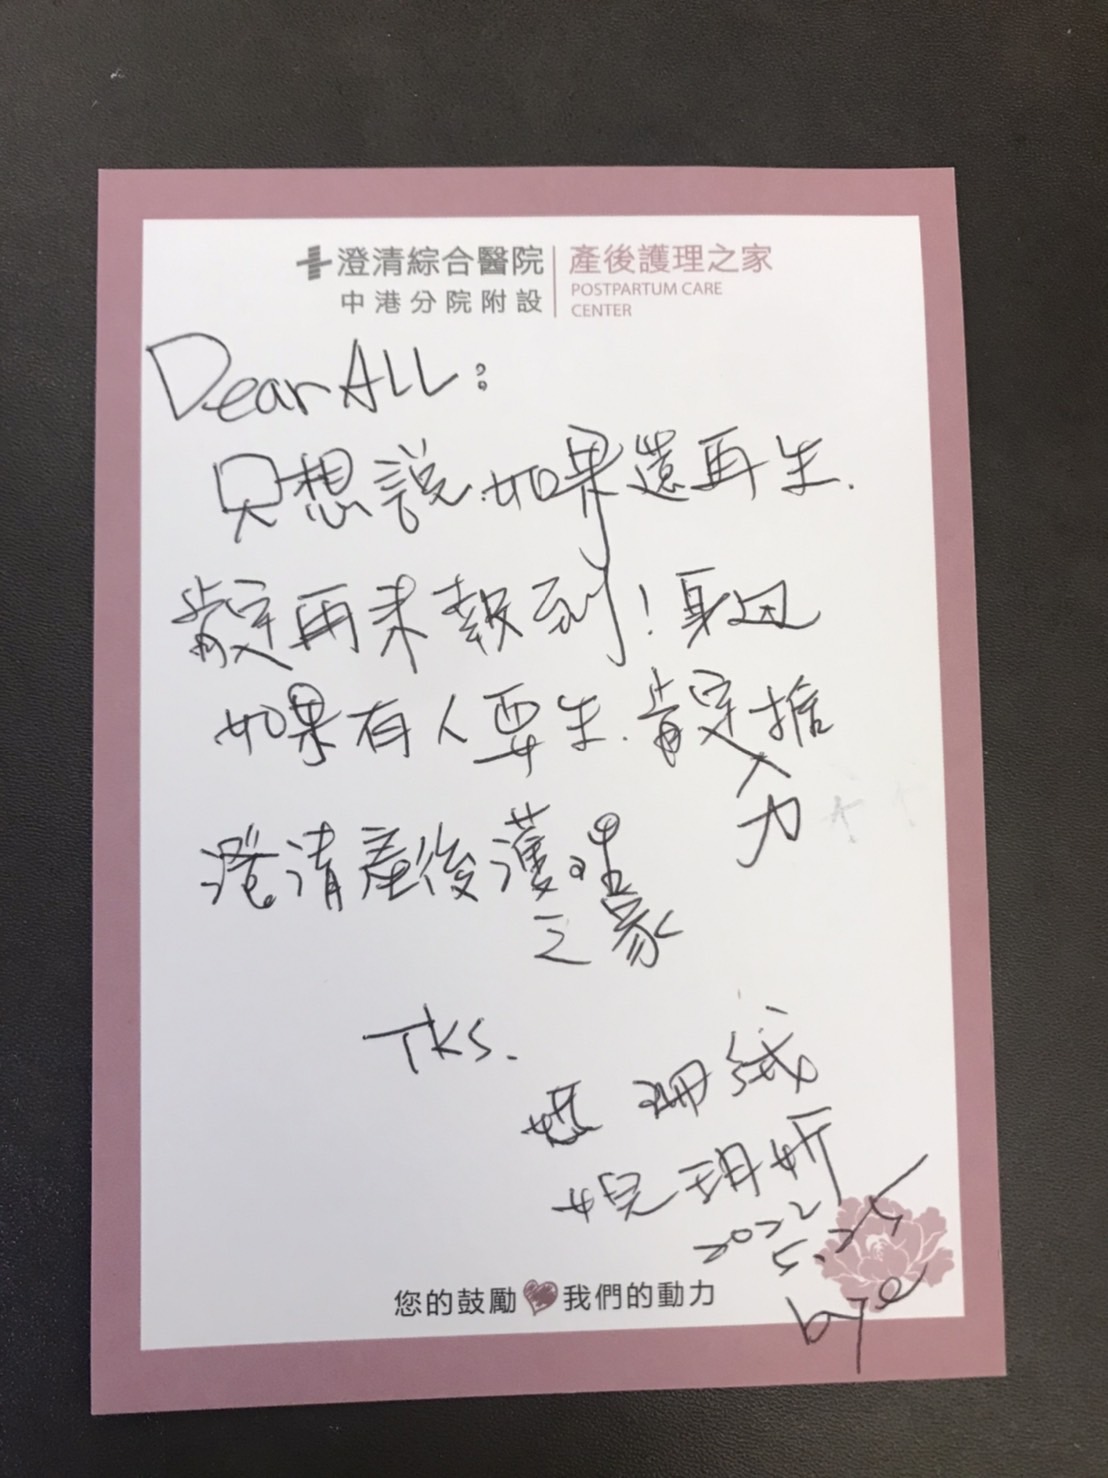 澄清綜合醫院
中港分院附設
產後護理之家
POSTPARTUM CARE
CENTER
Dear ALL:
只想說.如果還再生.
肯定再來報到!身邊
如果有人要生.肯定推
大力
澄清產後護理
之家
Tks.
珊
玥妡
2022
5.25
bye
您的鼓勵 我們的動力